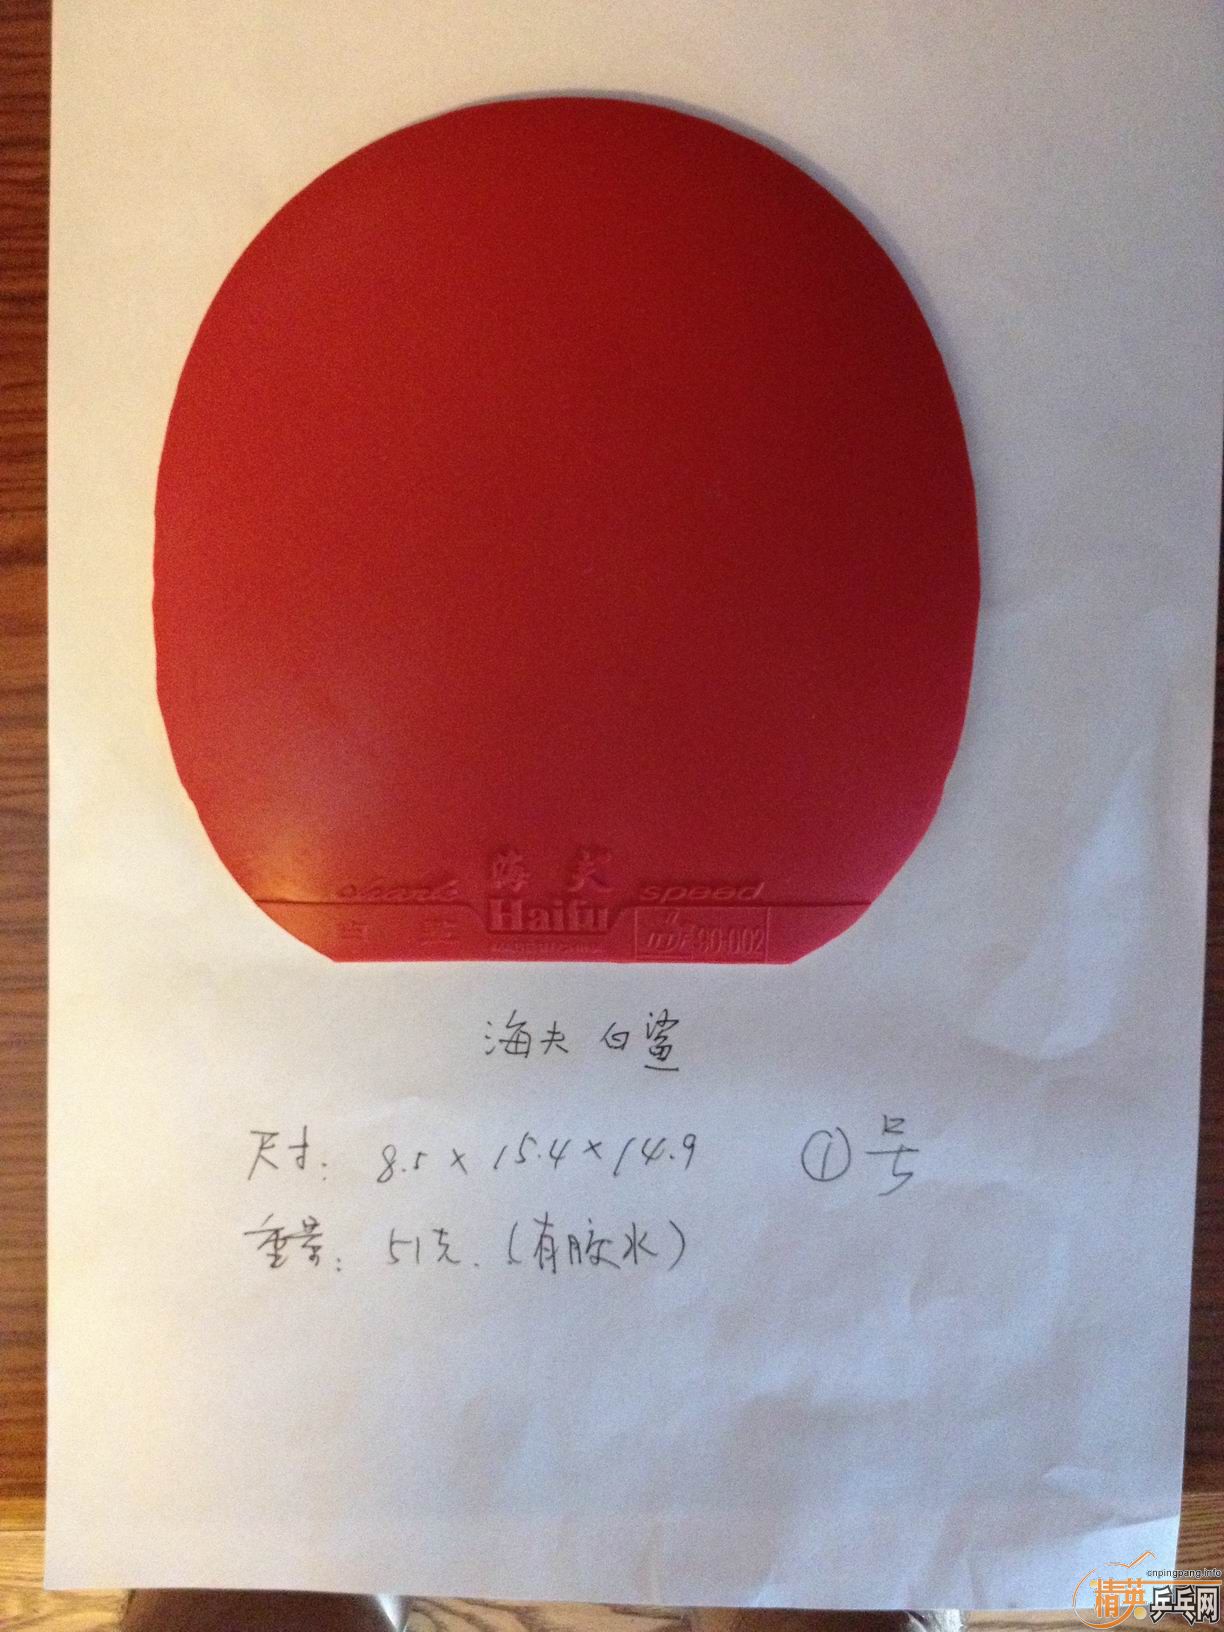 海夫
shark speed
Haifu
ITTF 90-002
海夫 白鲨
尺寸: 8.5 x 15.4 x 14.9 ①号
重量: 51克. (有胶水)
cnpingpang.info
精英乒乓网